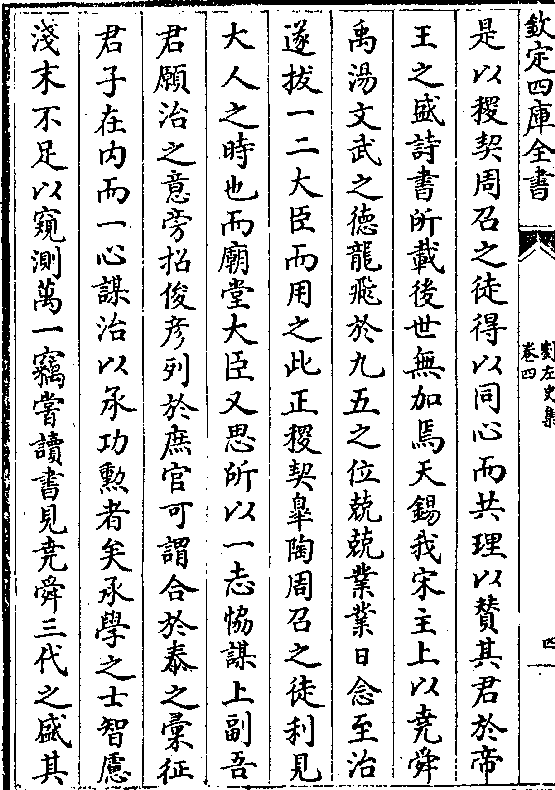 欽定四庫全書
劉左史集
卷四
四
是以稷契周召之徒得以同心而共理以賛其君於帝
王之盛詩書所載後世無加焉天錫我宋主上以堯舜
禹湯文武之德龍飛於九五之位兢兢業業日念至治
遂拔一二大臣而用之此正稷契臯陶周召之徒利見
大人之時也而廟堂大臣又思所以一志恊謀上副吾
君願治之意旁招俊彦列於庶官可謂合於泰之彚征
君子在内而一心謀治以承功勲者矣承學之士智慮
淺末不足以窺測萬一竊嘗讀書見堯舜三代之盛其